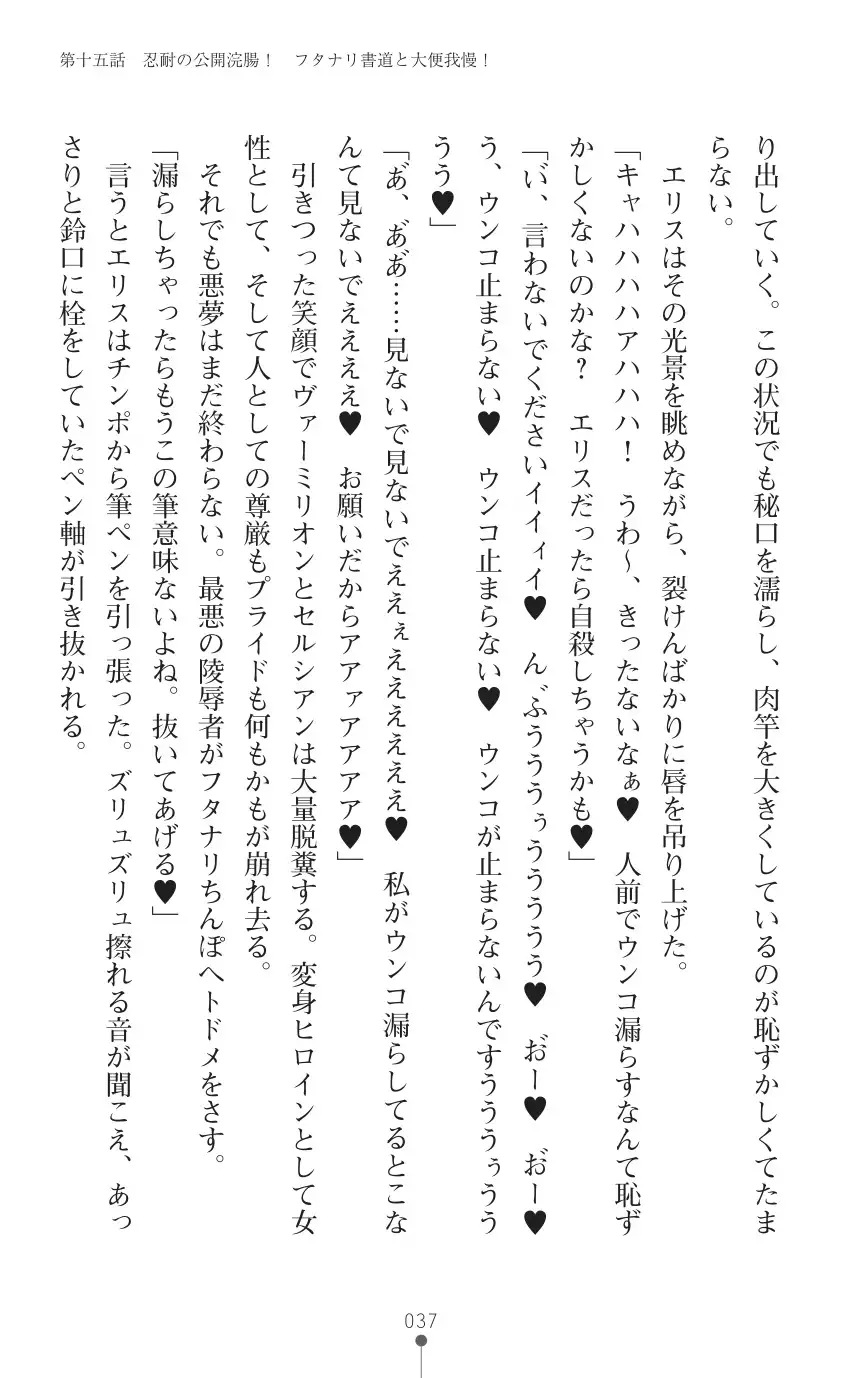 第十五話　忍耐の公開浣腸！　フタナリ書道と大便我慢！
り出していく。この状況でも秘口を濡らし、肉竿を大きくしているのが恥ずかしくてたま
らない。
　エリスはその光景を眺めながら、裂けんばかりに唇を吊り上げた。
「キャハハハハアハハハ！　うわ〜、きったないなぁ♥　人前でウンコ漏らすなんて恥ず
かしくないのかな？　エリスだったら自殺しちゃうかも♥」
「い゛、言わないでくださいイイィイ♥　ん゛ぶうううぅうううう♥　お゛ー♥　お゛ー♥
う、ウンコ止まらない♥　ウンコ止まらない♥　ウンコが止まらないんですうううぅうう
うう♥」
「あ゛、あ゛あ゛……見ないで見ないでええぇええええええ♥　私がウンコ漏らしてるとこな
んて見ないでええええ♥　お願いだからアアァアアアア♥」
　引きつった笑顔でヴァーミリオンとセルシアンは大量脱糞する。変身ヒロインとして女
性として、そして人としての尊厳もプライドも何もかもが崩れ去る。
　それでも悪夢はまだ終わらない。最悪の陵辱者がフタナリちんぽへトドメをさす。
「漏らしちゃったらもうこの筆意味ないよね。抜いてあげる♥」
　言うとエリスはチンポから筆ペンを引っ張った。ズリュズリュ擦れる音が聞こえ、あっ
さりと鈴口に栓をしていたペン軸が引き抜かれる。
037